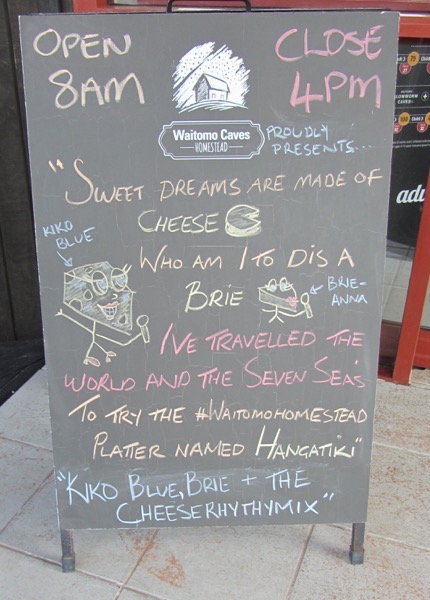 OPEN
8AM
CLOSE
4PM
Waitomo Caves
HOMESTEAD
PROUDLY
PRESENTS...
"SWEET DREAMS ARE MADE OF
CHEESE
KIKO
BLUE
WHO AM I TO DIS A
BRIE
BRIE-
ANNA
I'VE TRAVELLED THE
WORLD AND THE SEVEN SEA'S
TO TRY THE #WAITOMOHOMESTEAD
PLATTER NAMED HANGATIKI"
"KIKO BLUE, BRIE + THE
CHEESERHYTHYMIX"